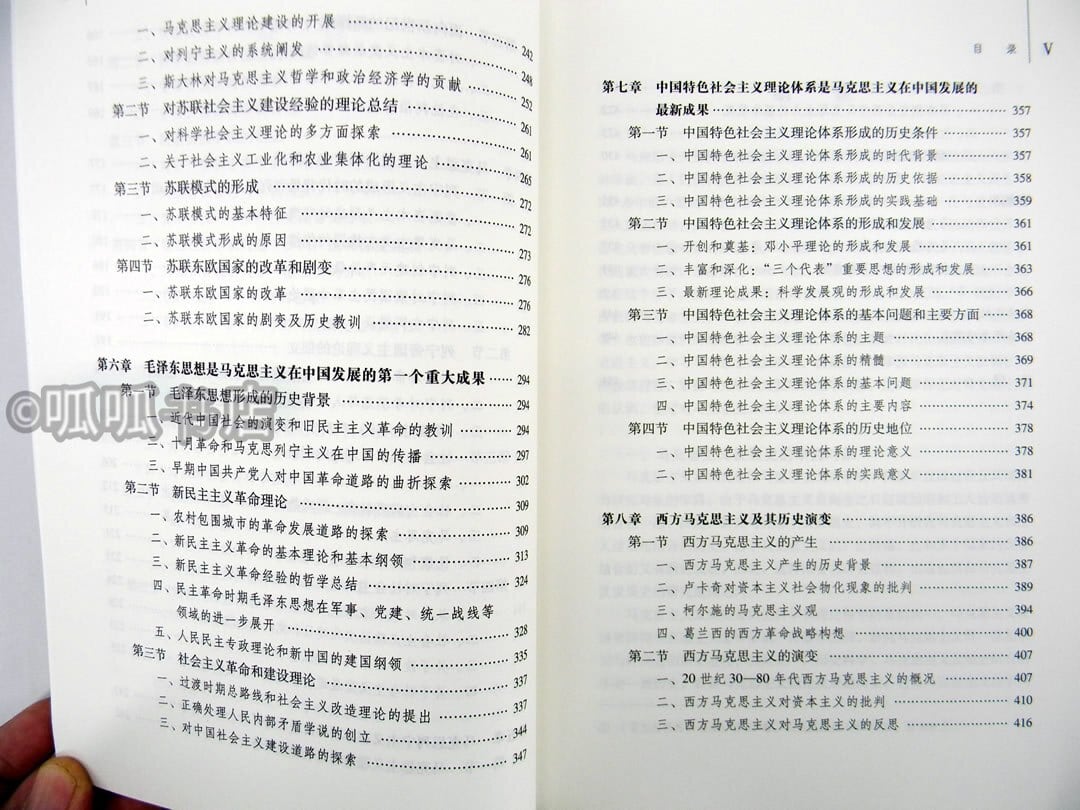 一、马克思主义理论建设的开展 …… 242
二、对列宁主义的系统阐发 …… 248
三、斯大林对马克思主义哲学和政治经济学的贡献 …… 252
第二节 对苏联社会主义建设经验的理论总结 …… 261
一、对科学社会主义理论的多方面探索 …… 261
二、关于社会主义工业化和农业集体化的理论 …… 265
第三节 苏联模式的形成 …… 272
一、苏联模式的基本特征 …… 272
二、苏联模式形成的原因 …… 273
第四节 苏联东欧国家的改革和剧变 …… 276
一、苏联东欧国家的改革 …… 276
二、苏联东欧国家的剧变及历史教训 …… 282
第六章 毛泽东思想是马克思主义在中国发展的第一个重大成果 …… 294
第一节 毛泽东思想形成的历史背景 …… 294
一、近代中国社会的演变和旧民主主义革命的教训 …… 294
二、十月革命和马克思列宁主义在中国的传播 …… 297
三、早期中国共产党人对中国革命道路的曲折探索 …… 302
第二节 新民主主义革命理论 …… 309
一、农村包围城市的革命发展道路的探索 …… 309
二、新民主主义革命的基本理论和基本纲领 …… 313
三、新民主主义革命经验的哲学总结 …… 324
四、民主革命时期毛泽东思想在军事、党建、统一战线等
领域的进一步展开 …… 328
五、人民民主专政理论和新中国的建国纲领 …… 335
第三节 社会主义革命和建设理论 …… 337
一、过渡时期总路线和社会主义改造理论的提出 …… 337
二、正确处理人民内部矛盾学说的创立 …… 344
三、对中国社会主义建设道路的探索 …… 347
©呱呱书店
目 录 V
第七章 中国特色社会主义理论体系是马克思主义在中国发展的
最新成果 …… 357
第一节 中国特色社会主义理论体系形成的历史条件 …… 357
一、中国特色社会主义理论体系形成的时代背景 …… 357
二、中国特色社会主义理论体系形成的历史依据 …… 358
三、中国特色社会主义理论体系形成的实践基础 …… 359
第二节 中国特色社会主义理论体系的形成和发展 …… 361
一、开创和奠基：邓小平理论的形成和发展 …… 361
二、丰富和深化：“三个代表”重要思想的形成和发展 …… 363
三、最新理论成果：科学发展观的形成和发展 …… 366
第三节 中国特色社会主义理论体系的基本问题和主要方面 …… 368
一、中国特色社会主义理论体系的主题 …… 368
二、中国特色社会主义理论体系的精髓 …… 369
三、中国特色社会主义理论体系的基本问题 …… 371
四、中国特色社会主义理论体系的主要内容 …… 374
第四节 中国特色社会主义理论体系的历史地位 …… 378
一、中国特色社会主义理论体系的理论意义 …… 378
二、中国特色社会主义理论体系的实践意义 …… 381
第八章 西方马克思主义及其历史演变 …… 386
第一节 西方马克思主义的产生 …… 386
一、西方马克思主义产生的历史背景 …… 387
二、卢卡奇对资本主义社会物化现象的批判 …… 389
三、柯尔施的马克思主义观 …… 394
四、葛兰西的西方革命战略构想 …… 400
第二节 西方马克思主义的演变 …… 407
一、20世纪30—80年代西方马克思主义的概况 …… 407
二、西方马克思主义对资本主义的批判 …… 410
三、西方马克思主义对马克思主义的反思 …… 416